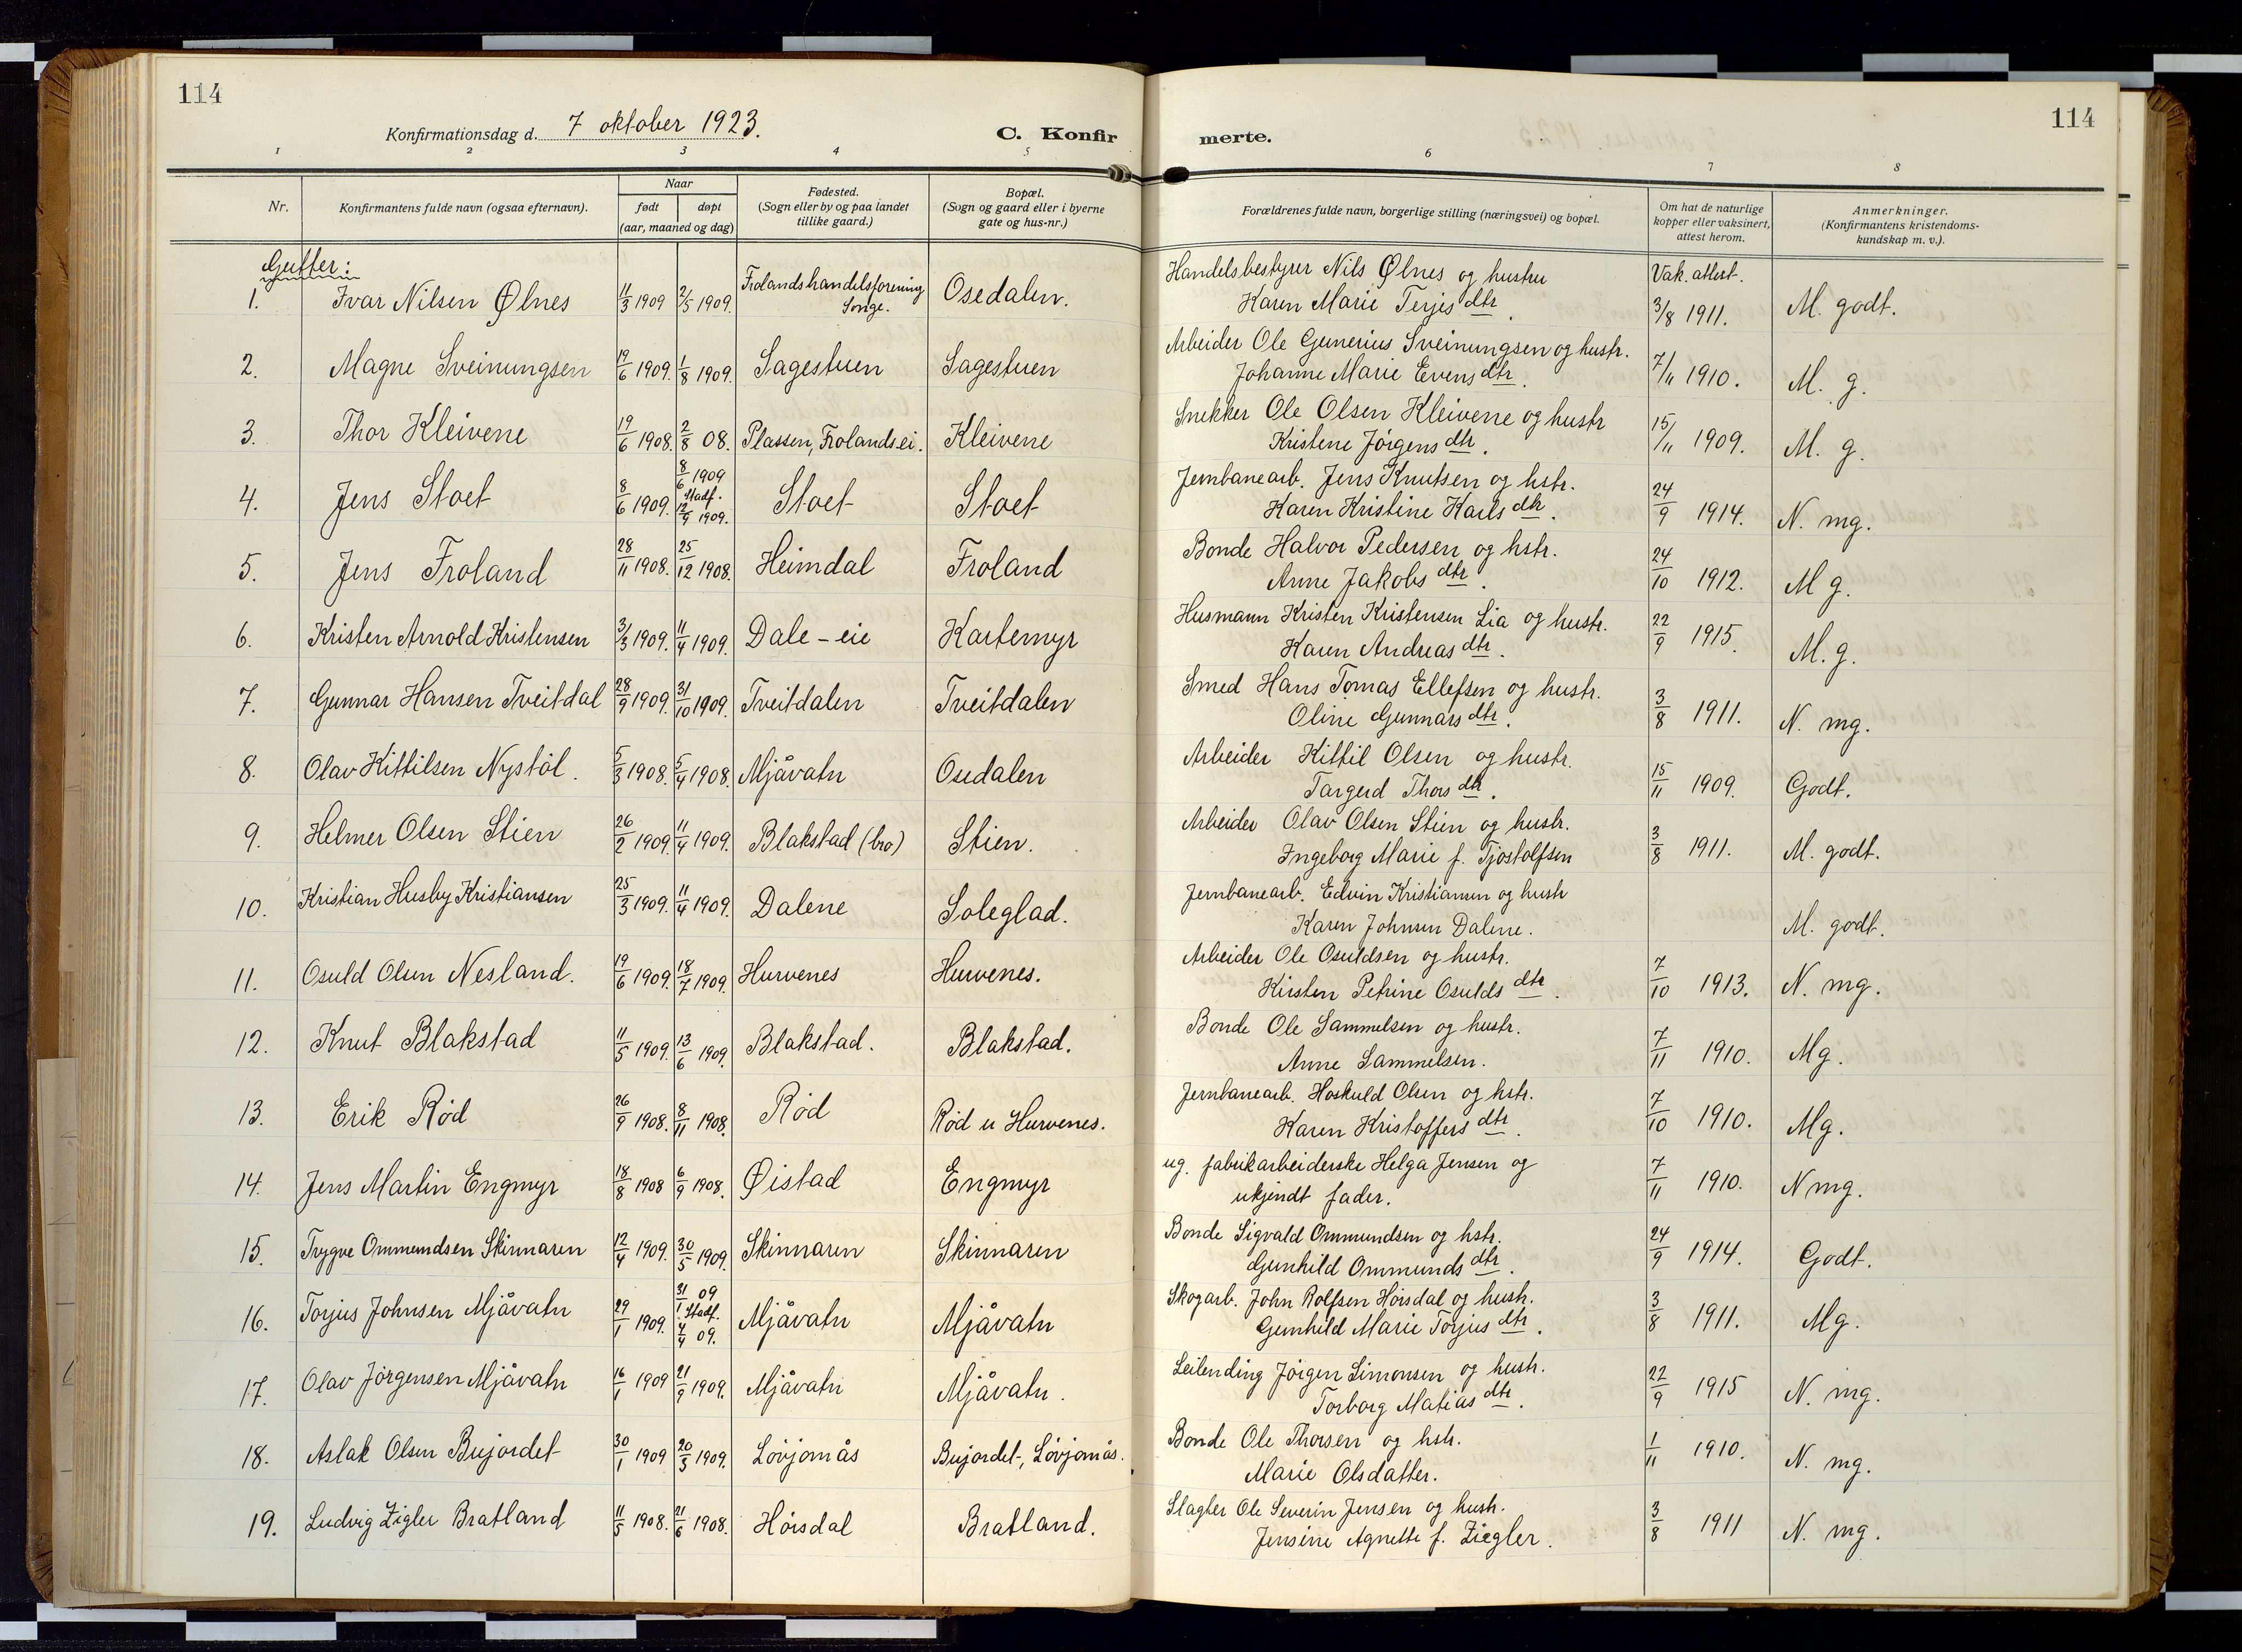 114
Konfirmationsdag d. 7 oktober 1923.
C. Konfir
merte.
114
1 2 3 4 5 6 7 8
Nr.
Konfirmantens fulde navn (ogsaa efternavn).
Naar
født døpt
(aar, maaned og dag)
Fødested.
(Sogn eller by og paa landet
tillike gaard.)
Bopæl.
(Sogn og gaard eller i byerne
gate og hus-nr.)
Forældrenes fulde navn, borgerlige stilling (næringsvei) og bopæl.
Om hat de naturlige
kopper eller vaksinert,
attest herom.
Anmerkninger.
(Konfirmantens kristendoms-
kundskap m. v.).
Gutter:
1. Ivar Nilsen Ølnes 11/3 1909 2/5 1909. Frolands handelsforening Songe. Osedalen. Handelsbestyrer Nils Ølnes og hustru
Karen Marie Terjes dtr. Vak. attest. 3/8 1911. M. godt.
2. Magne Sveinungsen 19/6 1909. 1/8 1909. Sagestuen Sagestuen Arbeider Ole Gunerius Sveinungsen og hustr.
Johanne Marie Evens dtr. 7/11 1910. M. g.
3. Thor Kleivene 19/6 1908. 2/8 08. Plassen, Frolands ei. Kleivene Snekker Ole Olsen Kleivene og hustr
Kristene Jörgens dtr. 15/11 1909. M. g.
4. Jens Stoet 8/6 1909. 8/6 1909 Stadf. 12/9 1909. Stoet Stoet Jernbanearb. Jens Knutsen og hstr.
Karen Kristine Karls dtr. 24/9 1914. N. mg.
5. Jens Froland 28/11 1908. 25/12 1908. Heimdal Froland Bonde Halvor Pedersen og hstr.
Anne Jakobs dtr. 24/10 1912. M g.
6. Kristen Arnold Kristensen 3/3 1909. 11/4 1909. Dale - eie Kartemyr Husmann Kristen Kristensen Lia og hustr.
Karen Andreas dtr. 22/9 1915. M. g.
7. Gunnar Hansen Tveitdal 28/9 1909. 31/10 1909. Tveitdalen Tveitdalen Smed Hans Tomas Ellefsen og hustr.
Oline Gunnars dtr. 3/8 1911. N. mg.
8. Olav Kittilsen Nystöl. 5/3 1908. 5/4 1908. Mjåvatn Osedalen Arbeider Kittil Olsen og hustr.
Targerd Thors dtr. 15/11 1909. Godt.
9. Helmer Olsen Stien 26/2 1909. 11/4 1909. Blakstad (bro) Stien. Arbeider Olav Olsen Stien og hustr.
Ingeborg Marie f. Tjostolfsen 3/8 1911. M. godt.
10. Kristian Husby Kristiansen 25/3 1909. 11/4 1909. Dalene Soleglad. Jernbanearb. Edvin Kristiansen og hustr
Karen Johnsen Dalene. M. godt.
11. Osuld Olsen Nesland. 19/6 1909. 18/7 1909. Hurvenes Hurvenes. Arbeider Ole Osuldsen og hustr.
Kirsten Petrine Osulds dtr. 7/10 1913. N. mg.
12. Knut Blakstad 11/5 1909. 13/6 1909. Blakstad. Blakstad. Bonde Ole Sammelsen og hustr.
Anne Sammelsen. 7/11 1910. Mg.
13. Erik Rød 26/9 1908. 8/11 1908. Rød Rød u Hurvenes. Jernbanearb. Hoskuld Olsen og hstr.
Karen Kristoffers dtr. 7/10 1910. Mg.
14. Jens Martin Engmyr 18/8 1908 6/9 1908. Øistad Engmyr ug. fabrikarbeiderske Helga Jensen og
ukjendt fader. 7/11 1910. N mg.
15. Trygve Ommundsen Skinnaren 12/4 1909. 30/5 1909. Skinnaren Skinnaren Bonde Sigvald Ommundsen og hstr.
Gunhild Ommunds dtr. 24/9 1914. Godt.
16. Torjus Johnsen Mjåvatn 29/1 1909. 31/1 09 Stadf. 4/4 09. Mjåvatn Mjåvatn Skogarb. John Rolfsen Hörsdal og hustr.
Gunhild Marie Torjus dtr. 3/8 1911. Mg.
17. Olav Jörgensen Mjåvatn 16/1 1909 21/9 1909. Mjåvatn Mjåvatn. Leilending Jörgen Simonsen og hustr.
Torborg Matias dtr. 22/9 1915 N. mg.
18. Aslak Olsen Bujordet 30/1 1909 20/3 1909. Lövjomås Bujordet, Lövjomås. Bonde Ole Thorsen og hstr.
Marie Olsdatter. 1/11 1910. N. mg.
19. Ludvig Zigler Bratland 11/5 1908. 21/6 1908. Hörsdal Bratland. Slagter Ole Severin Jensen og hustr.
Jensine Agnette f. Ziegler. 3/8 1911 N. mg.